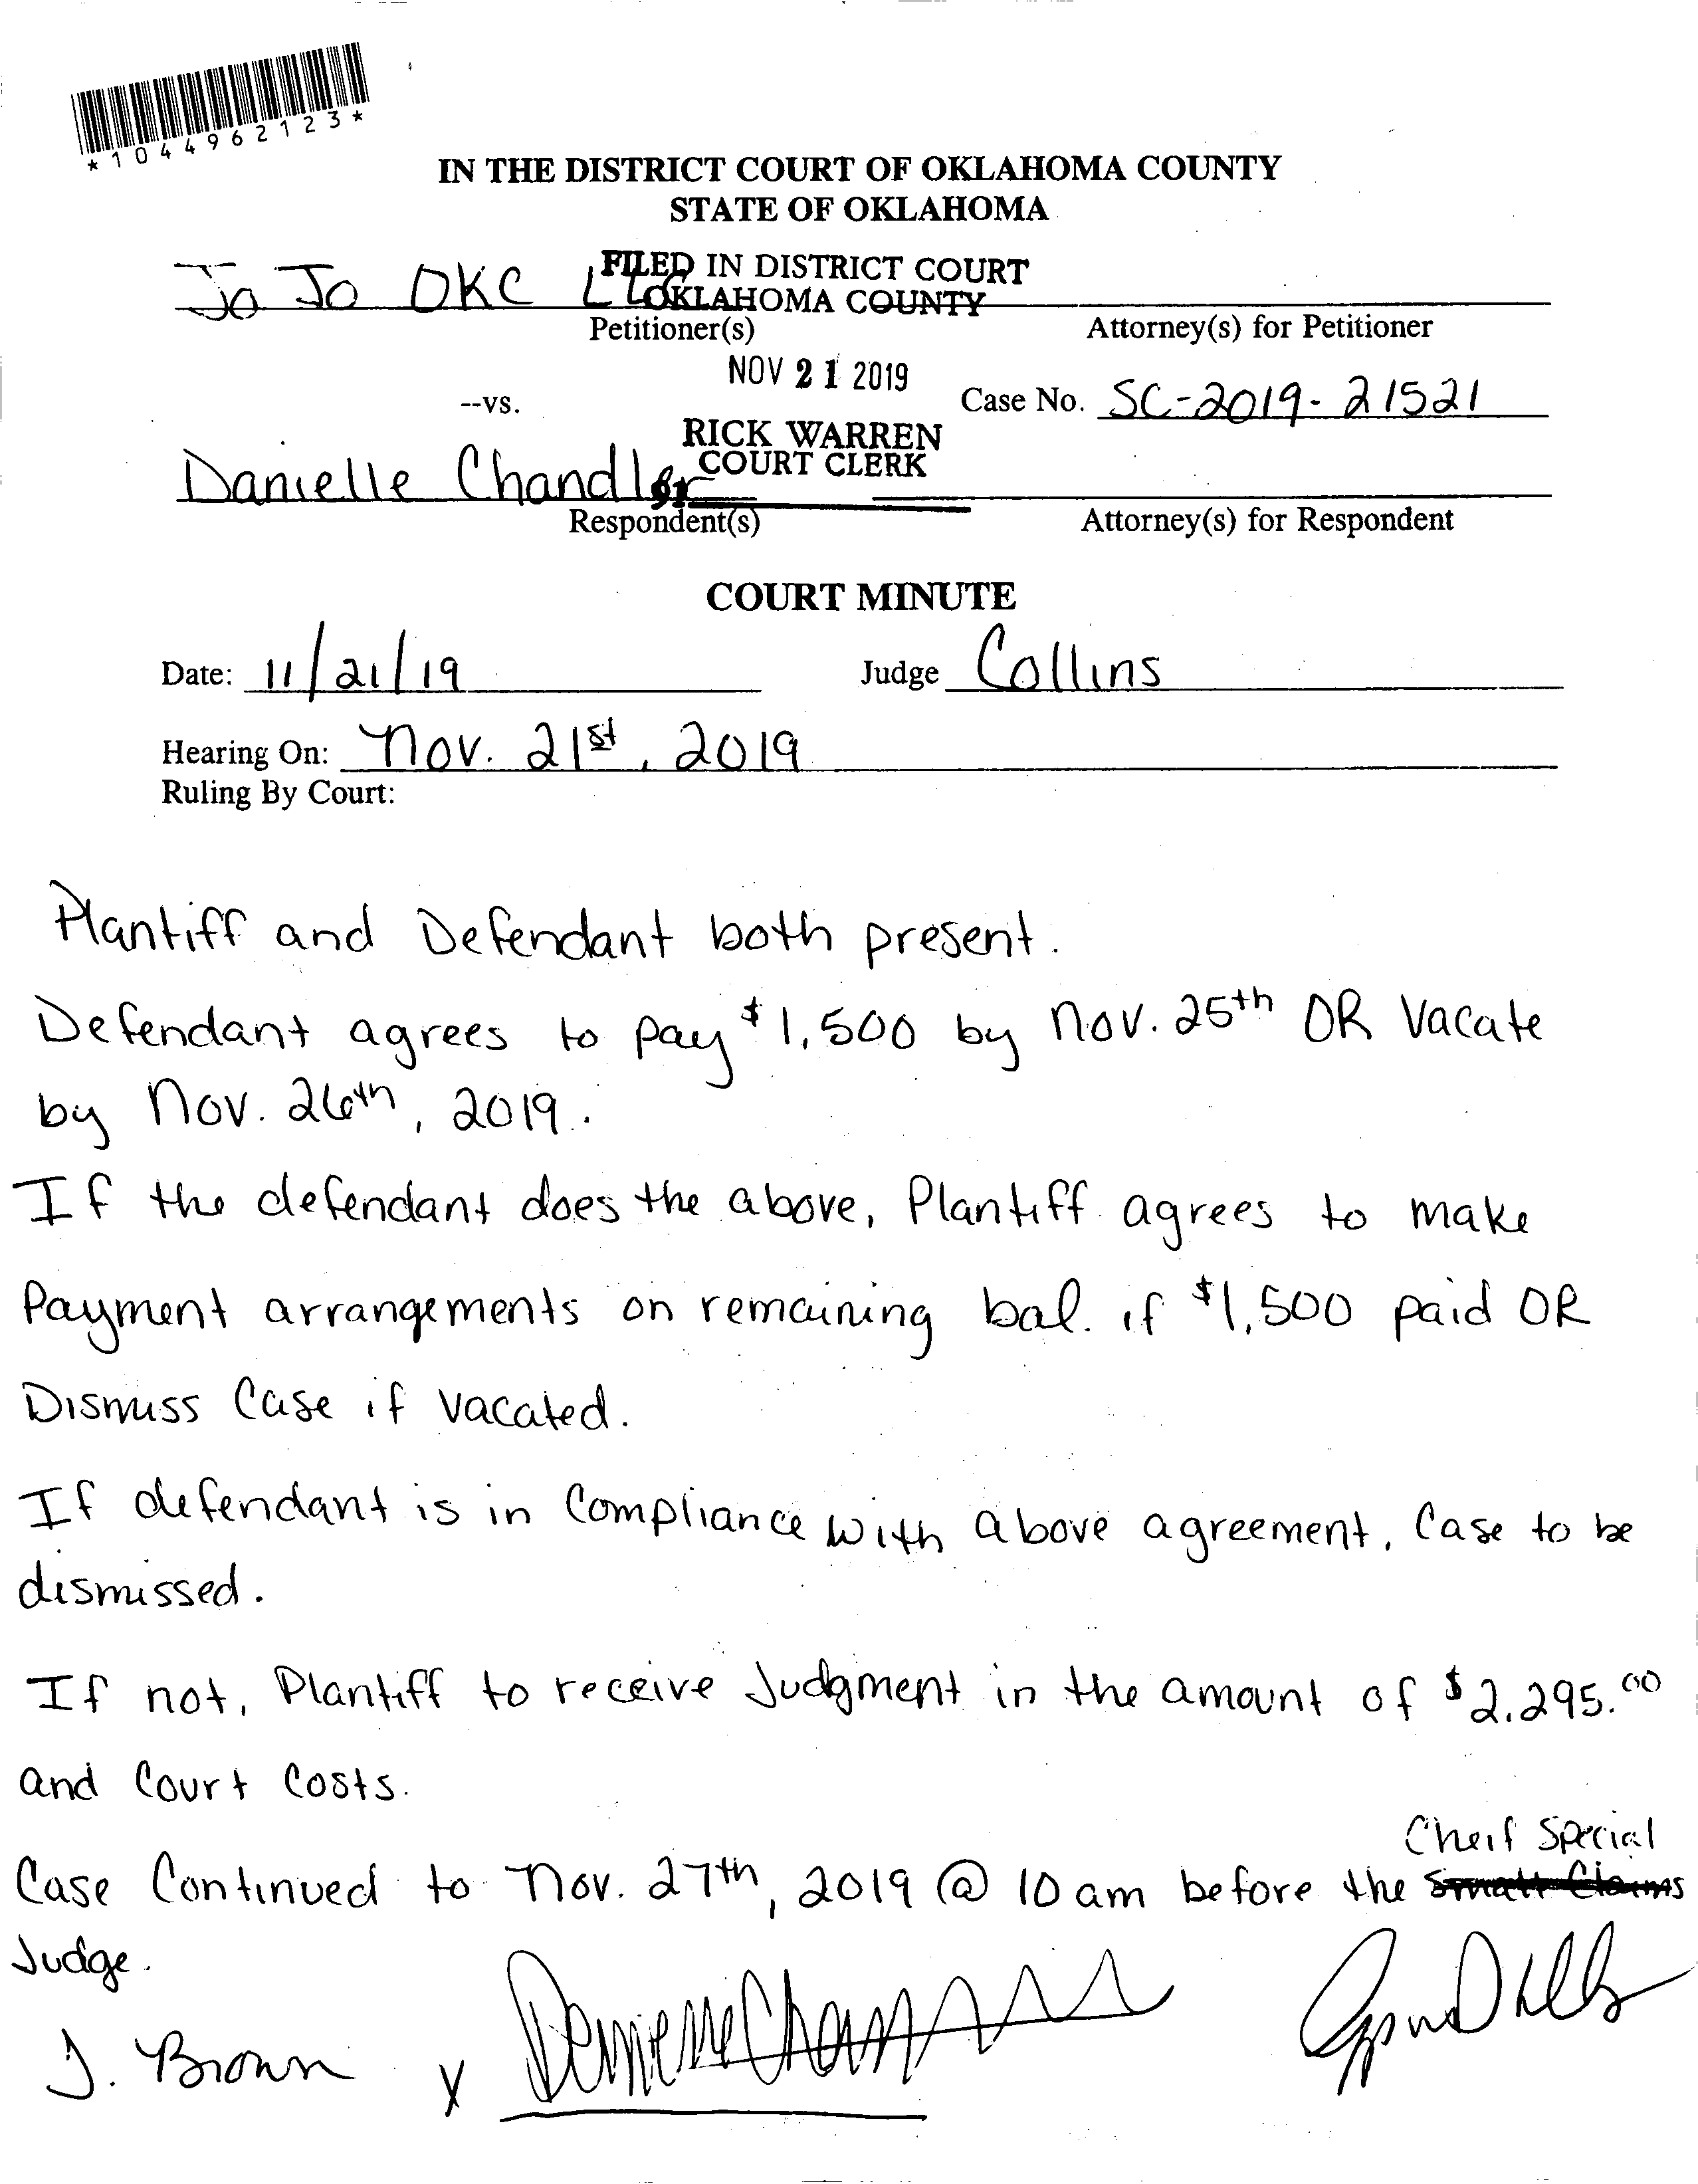 *1044962123*
IN THE DISTRICT COURT OF OKLAHOMA COUNTY
STATE OF OKLAHOMA
FILED IN DISTRICT COURT
OKLAHOMA COUNTY
Jo Jo OKC LLC
Petitioner(s) Attorney(s) for Petitioner
NOV 21 2019
--vs. Case No. SC-2019-21521
RICK WARREN
COURT CLERK
Danielle Chandler
Respondent(s) Attorney(s) for Respondent
COURT MINUTE
Date: 11/21/19 Judge Collins
Hearing On: Nov. 21st, 2019
Ruling By Court:
Plantiff and Defendant both present.
Defendant agrees to pay $1,500 by Nov. 25th OR Vacate
by Nov. 26th, 2019.
If the defendant does the above, Plantiff agrees to make
Payment arrangements on remaining bal. if $1,500 paid OR
Dismiss Case if vacated.
If defendant is in Compliance with above agreement, Case to be
dismissed.
If not, Plantiff to receive Judgment in the amount of $2,295.00
and Court Costs.
Cheif Special
Case Continued to Nov. 27th, 2019 @ 10 am before the Small Claims
Judge.
J. Brown x